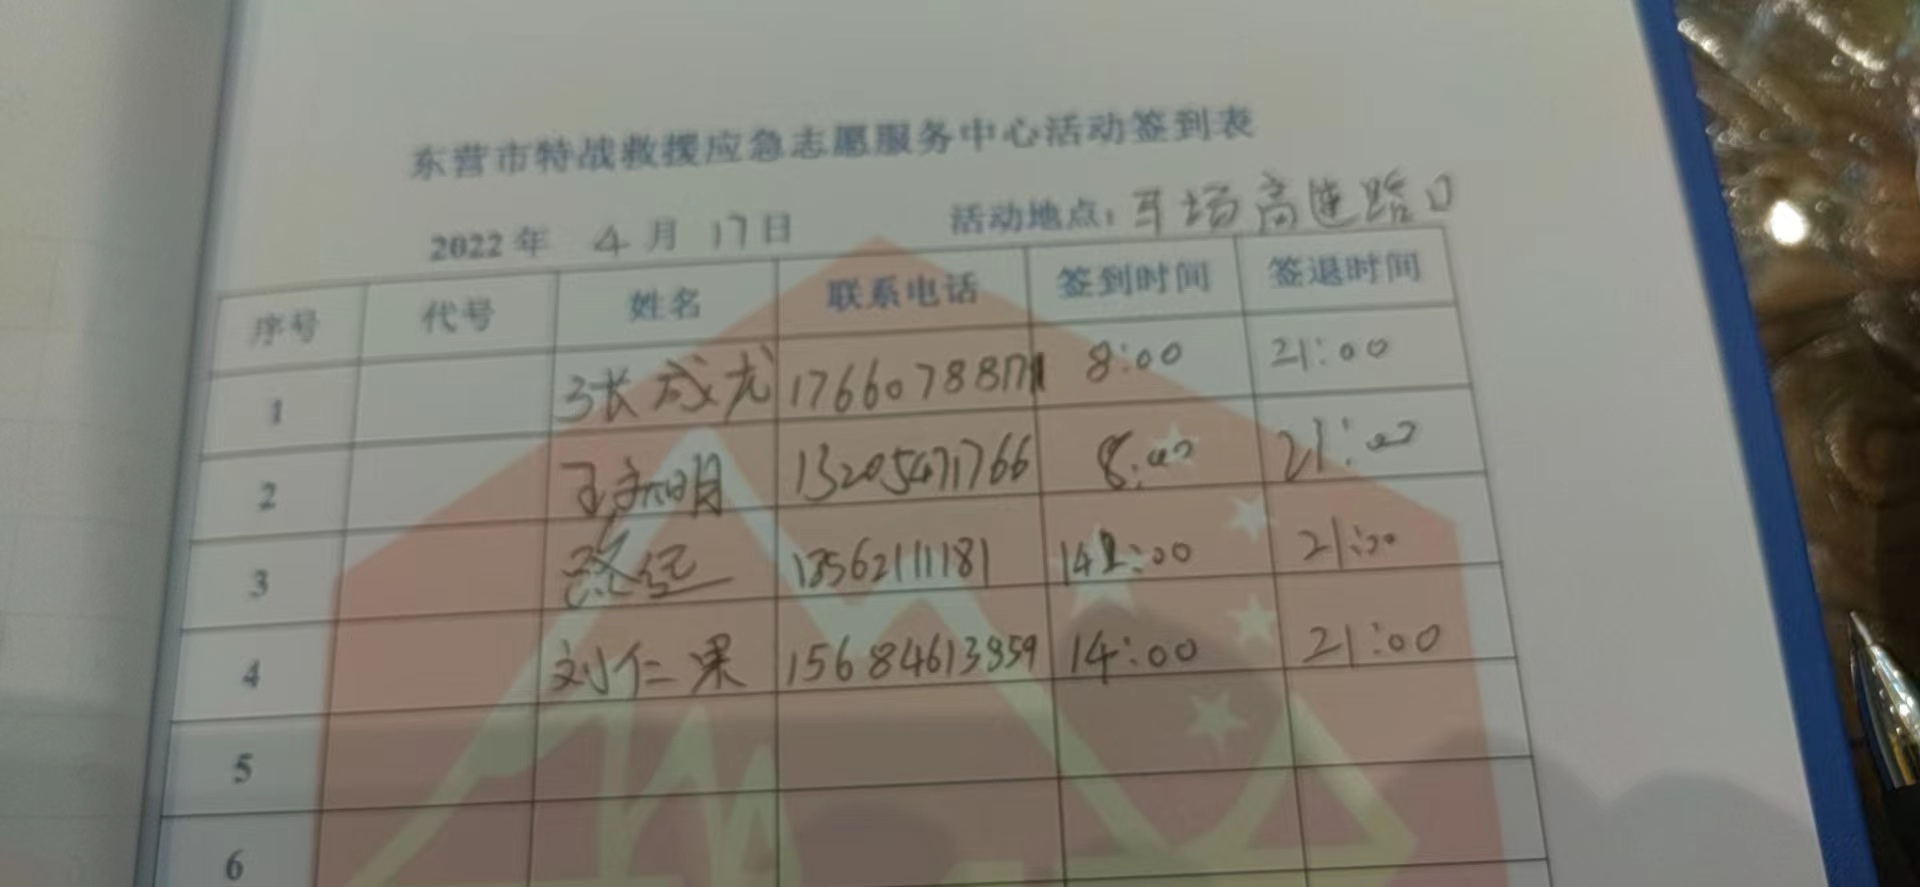 东营市特战救援应急志愿服务中心活动签到表
2022 年 4 月 17 日 活动地点: 耳场高速路口
序号 代号 姓名 联系电话 签到时间 签退时间
1 张成龙 8:00 21:00
2 明 13205471766 8:00 21:00
3 13562111181 21:00
4 刘仁果 15684613959 14:00 21:00
5
6